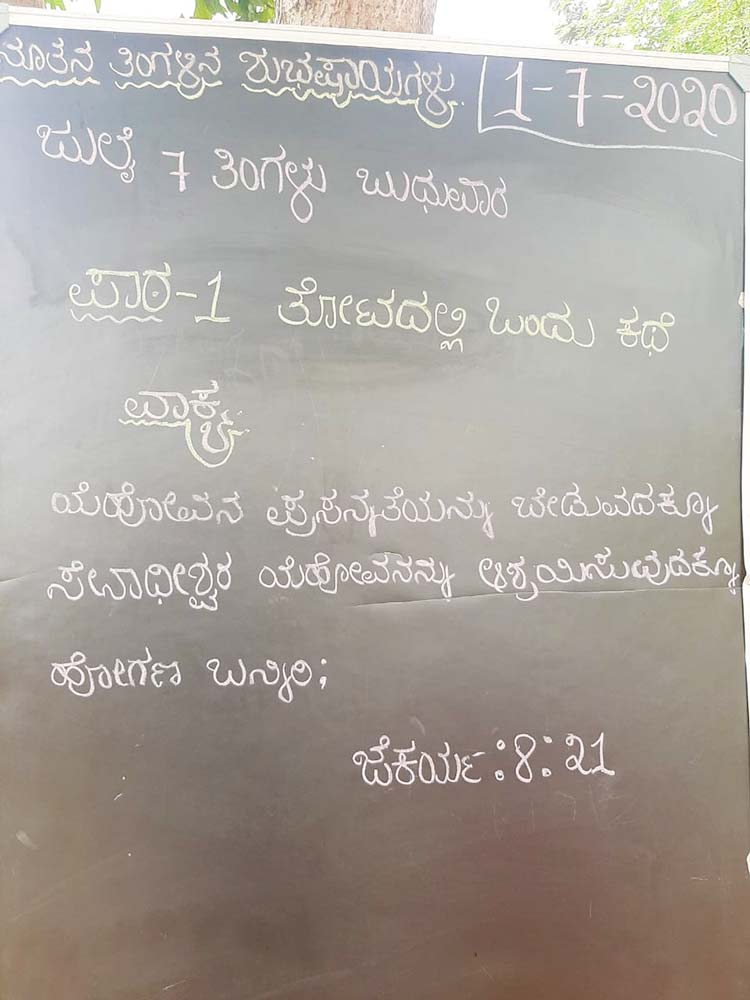 ನೂತನ ತಿಂಗಳಿನ ಶುಭಷಾಯಗಳು 1-7-2020
ಜುಲೈ 7 ತಿಂಗಳು ಬುಧುವಾರ
ಪಾಠ-1 ತೋಟದಲ್ಲಿ ಒಂದು ಕಥೆ
ವಾಕ್ಯ
ಯೆಹೋವನ ಪ್ರಸನ್ನತೆಯನ್ನು ಬೇಡುವದಕ್ಕೂ
ಸೇನಾಧೀಶ್ವರ ಯೆಹೋವನನ್ನು ಆಶ್ರಯಿಸುವುದಕ್ಕೂ
ಹೋಗಣ ಬನ್ನಿರಿ;
ಜೆಕರ್ಯ:8:21